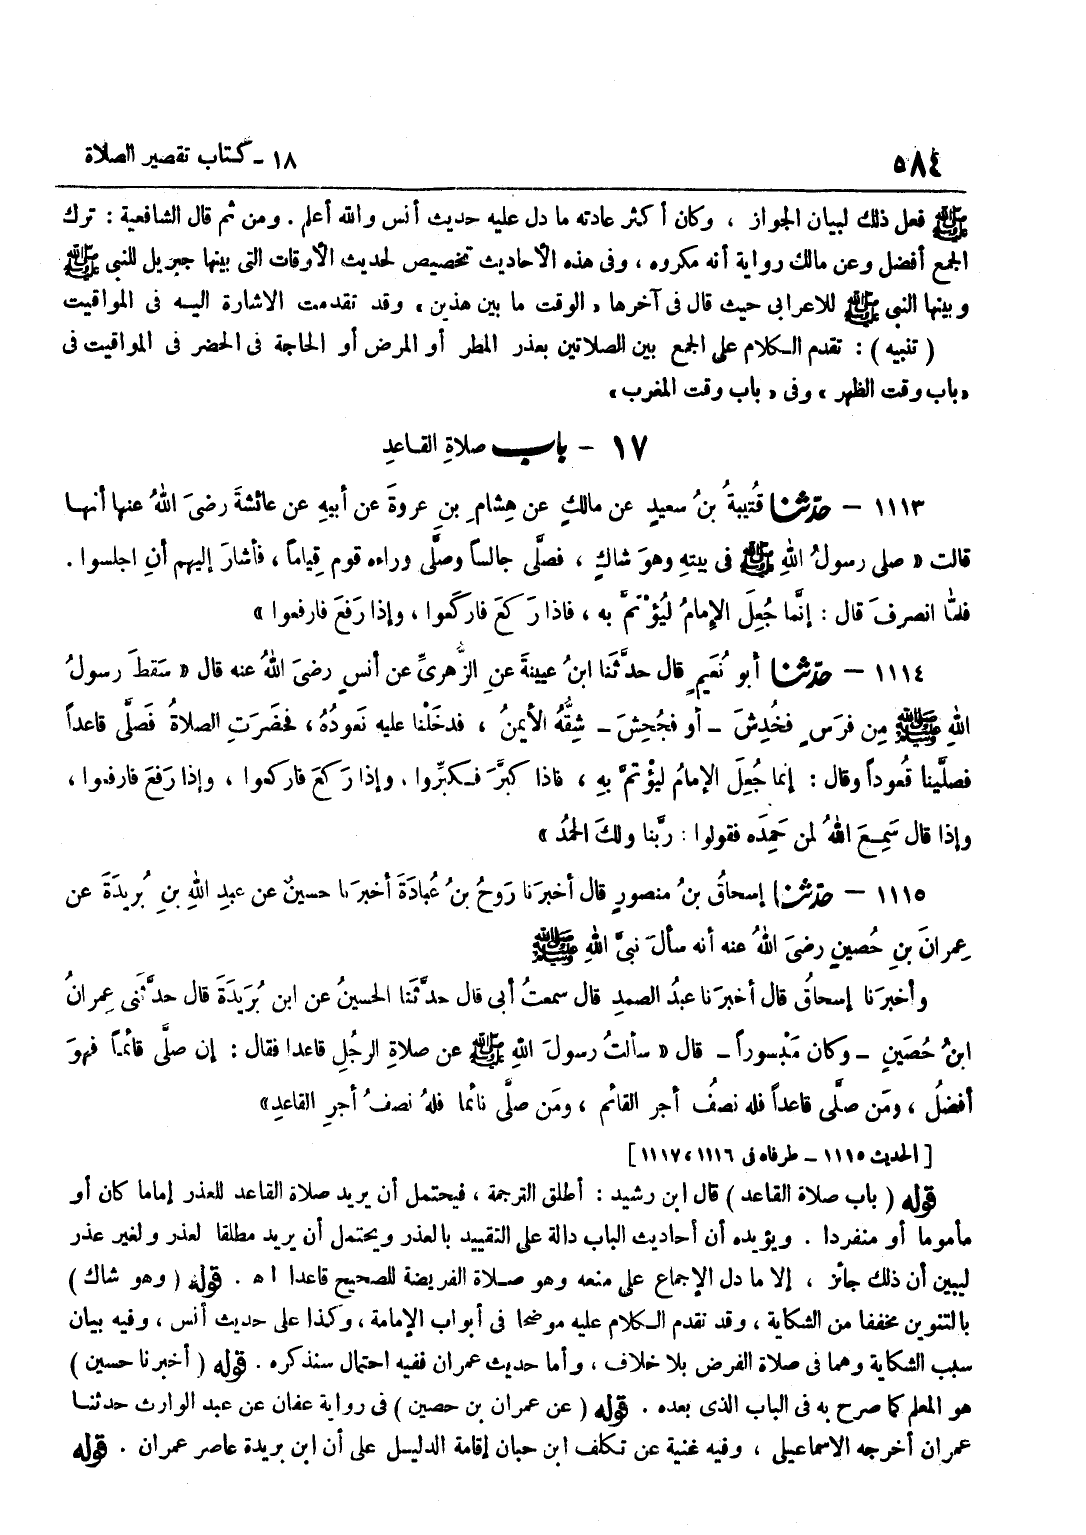 ٥٨٤ ١٨ - كتاب تقصير الصلاة
ﷺ فعل ذلك لبيان الجواز ، وكان أكثر عادته ما دل عليه حديث أنس والله أعلم . ومن ثم قال الشافعية : ترك
الجمع أفضل وعن مالك رواية أنه مكروه ، وفى هذه الأحاديث تخصيص لحديث الأوقات التى بينها جبريل للنبى ﷺ
وبينها النبى ﷺ للاعرابى حيث قال فى آخرها « الوقت ما بين هذين » وقد تقدمت الاشارة اليه فى المواقيت
( تنبيه ) : تقدم الكلام على الجمع بين الصلاتين بعذر المطر أو المرض أو الحاجة فى الحضر فى المواقيت فى
« باب وقت الظهر » وفى « باب وقت المغرب »
١٧ - باب صلاةِ القـاعدِ
١١١٣ - حدّثنا قُتيبةُ بنُ سعيدٍ عن مالكٍ عن هِشامِ بنِ عروةَ عن أبيهِ عن عائشةَ رضىَ اللهُ عنها أنهـا
قالت « صلى رسولُ اللهِ ﷺ فى بيتهِ وهوَ شاكٍ ، فصلَّى جالساً وصلَّى وراءه قوم قِياماً ، فأشارَ إليهم أنِ اجلسوا .
فلمّا انصرفَ قال : إنَّما جُعِلَ الإمامُ لِيُؤْتمَّ به ، فاذا رَكعَ فاركَعوا ، وإذا رَفعَ فارفعوا »
١١١٤ - حدّثنا أبو نُعَيمٍ قال حدَّثَنا ابنُ عيينةَ عنِ الزُّهرىِّ عن أنسٍ رضىَ اللهُ عنه قال « سَقطَ رسولُ
اللهِ ﷺ مِن فرَسٍ فخُدِشَ - أو فجُحِشَ - شِقُّهُ الأيمنُ ، فدخَلْنا عليه نَعودُهُ ، فحَضرَتِ الصلاةُ فَصلَّى قاعداً
فصلَّينا قُعوداً وقال : إنما جُعِلَ الإمامُ لِيؤْتمَّ بهِ ، فاذا كبَّرَ فـكبِّروا . وإذا رَكعَ فاركعوا ، وإذا رَفعَ فارفعوا ،
وإذا قال سَمِعَ اللهُ لمن حَمِدَه فقولوا : ربَّنا ولكَ الحمدُ »
١١١٥ - حدّثنا إسحاقُ بنُ منصورٍ قال أخبرَنا رَوحُ بنُ عُبادَةَ أخبرَنا حسينٌ عن عبدِ اللهِ بنِ بُريدَةَ عن
عِمرانَ بنِ حُصينٍ رضىَ اللهُ عنه أنه سألَ نبىَّ اللهِ ﷺ
وأخبرَنا إسحاقُ قال أخبرَنا عبدُ الصمدِ قال سمعتُ أبى قال حدَّثَنا الحسينُ عن ابن بُرَيدَةَ قال حدَّثنى عِمرانُ
ابنُ حُصَينٍ - وكان مَبْسوراً - قال « سألتُ رسولَ اللهِ ﷺ عن صلاةِ الرجُلِ قاعدا فقال : إن صلَّى قائمـاً فهوَ
أفضلُ ، ومَن صلَّى قاعداً فله نصفُ أجر القائم ، ومَن صلَّى نائما فلهُ نصفُ أجرِ القاعدِ »
[ الحديث ١١١٥ - طرفاه فى ١١١٦ ، ١١١٧ ]
قوله ( باب صلاة القاعد ) قال ابن رشيد : أطلق الترجمة ، فيحتمل أن يريد صلاة القاعد للعذر إماما كان أو
مأموما أو منفردا . ويؤيده أن أحاديث الباب دالة على التقييد بالعذر ويحتمل أن يريد مطلقا لعذر ولغير عذر
ليبين أن ذلك جائز ، إلا ما دل الإجماع على منعه وهو صلاة الفريضة للصحيح قاعدا ا هـ . قوله ( وهو شاك )
بالتنوين مخففا من الشكاية ، وقد تقدم الكلام عليه موضحا فى أبواب الإمامة ، وكذا على حديث أنس ، وفيه بيان
سبب الشكاية وهما فى صلاة الفرض بلا خلاف ، وأما حديث عمران ففيه احتمال سنذكره . قوله ( أخبرنا حسين )
هو المعلم كما صرح به فى الباب الذى بعده . قوله ( عن عمران بن حصين ) فى رواية عفان عن عبد الوارث حدثنـا
عمران أخرجه الاسماعيلى ، وفيه غنية عن تكلف ابن حبان إقامة الدليل على أن ابن بريدة عاصر عمران . قوله